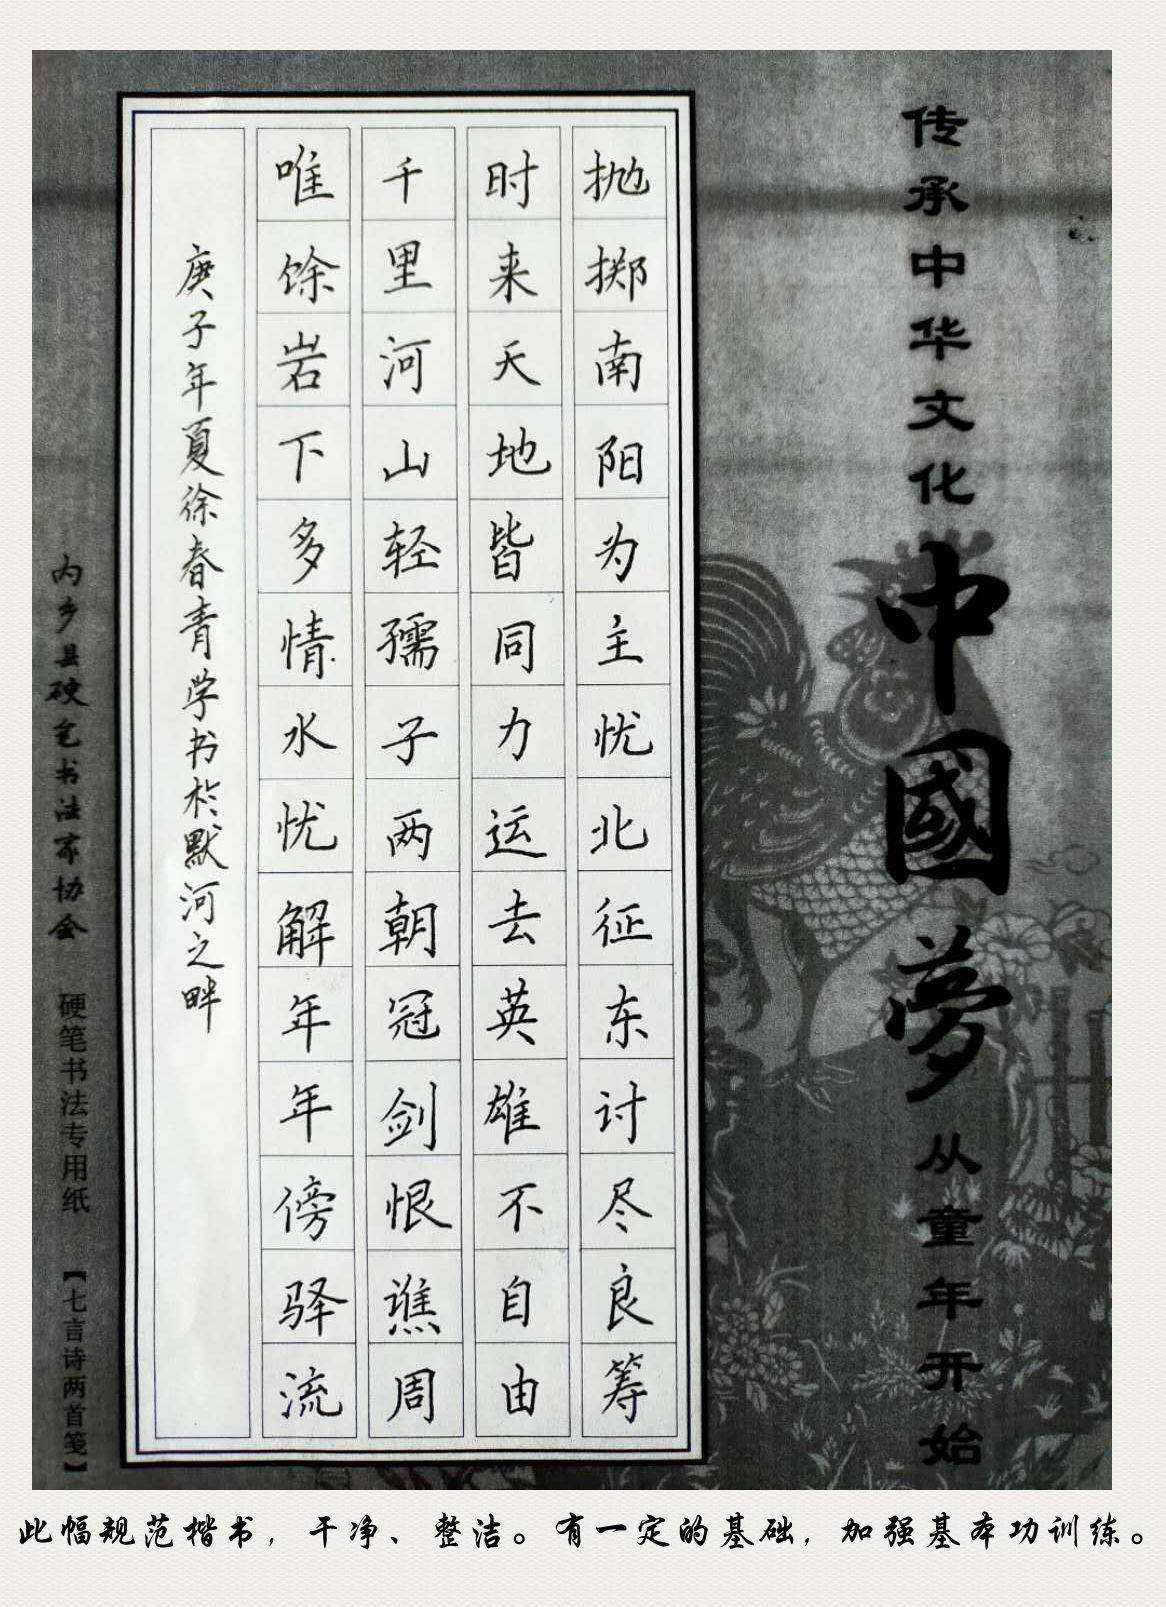 传承中华文化
中國夢
从童年开始
抛掷南阳为主忧北征东讨尽良筹
时来天地皆同力运去英雄不自由
千里河山轻孺子两朝冠剑恨谯周
唯馀岩下多情水忧解年年傍驿流
庚子年夏徐春青学书於默河之畔
内乡县硬笔书法家协会 硬笔书法专用纸 【七言诗两首笺】
此幅规范楷书，干净、整洁。有一定的基础，加强基本功训练。